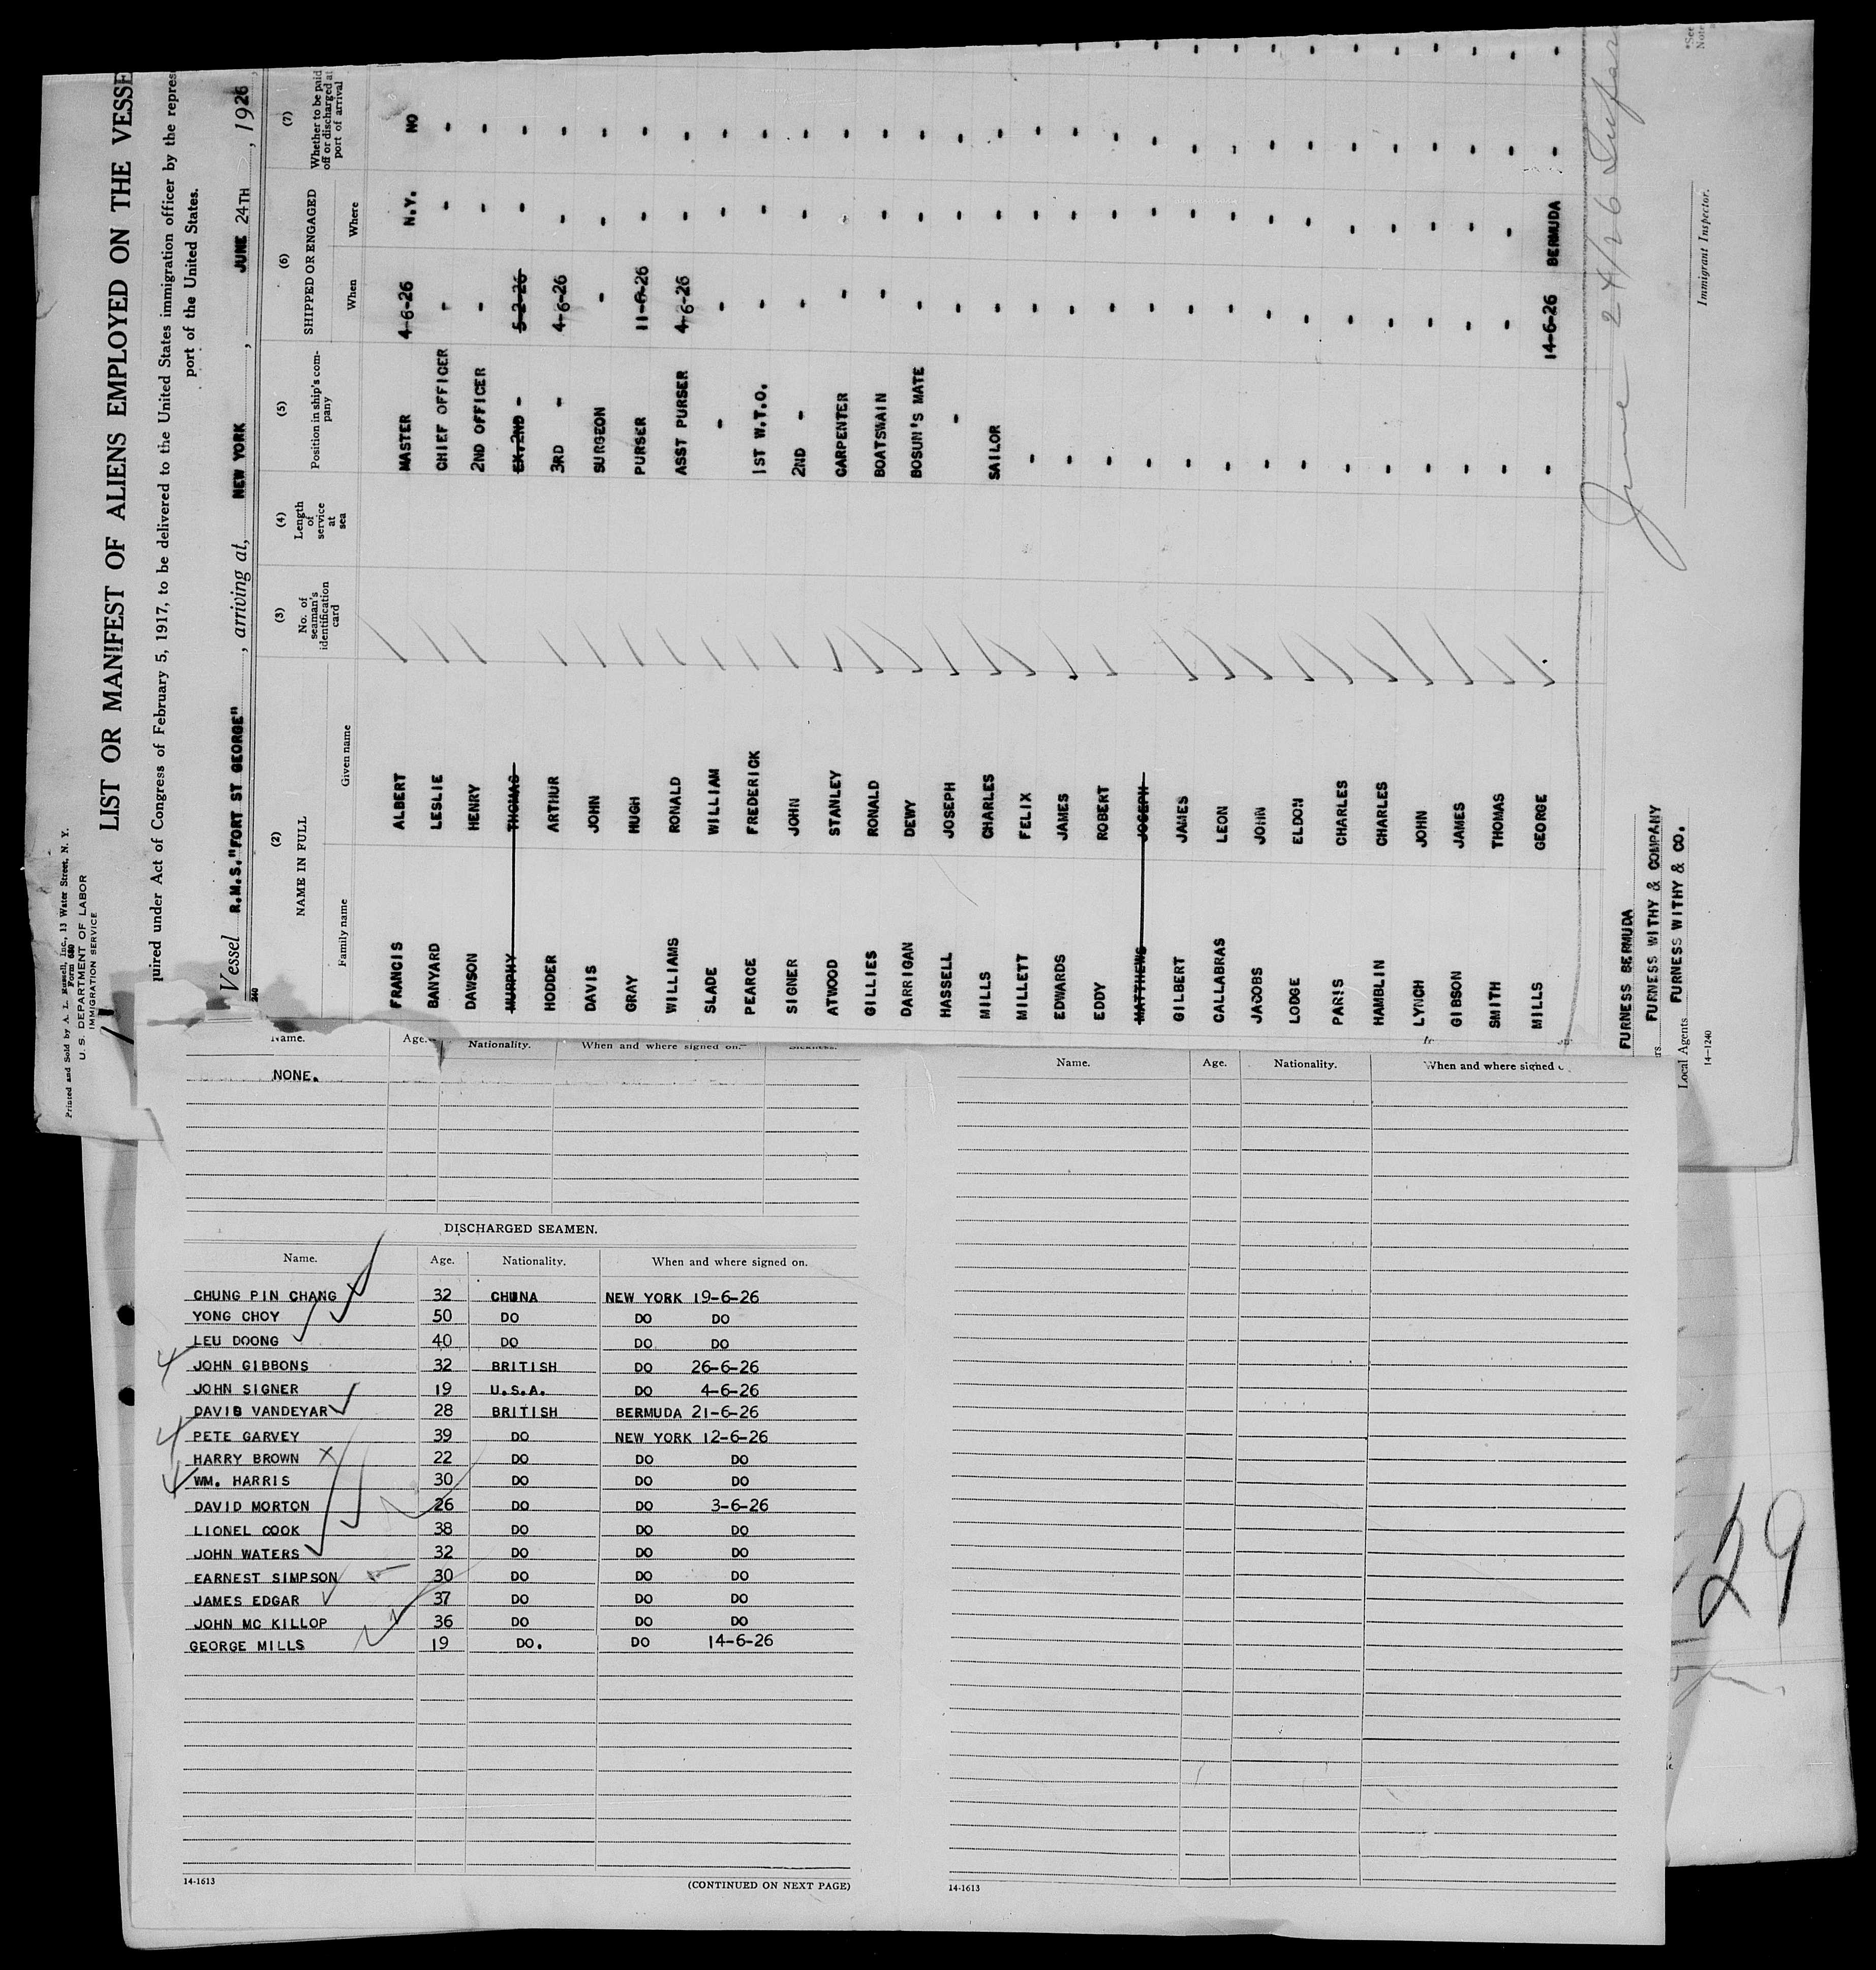 Printed and Sold by A. L. Russell, Inc., 13 Water Street, N. Y.
Form 680
U. S. DEPARTMENT OF LABOR
IMMIGRATION SERVICE
LIST OR MANIFEST OF ALIENS EMPLOYED ON THE VESSE
quired under Act of Congress of February 5, 1917, to be delivered to the United States immigration officer by the repres
port of the United States.
Vessel R.M.S."FORT ST GEORGE", arriving at, NEW YORK, JUNE 24TH, 1926
240
(2) (3) (4) (5) (6) (7)
NAME IN FULL No. of seaman's identification card Length of service at sea Position in ship's company SHIPPED OR ENGAGED Whether to be paid off or discharged at port of arrival
Family name Given name When Where
FRANCIS ALBERT MASTER 4-6-26 N.Y. NO
BANYARD LESLIE CHIEF OFFICER - - -
DAWSON HENRY 2ND OFFICER - - -
MURPHY THOMAS EX.2ND - 5-2-26 - -
HODDER ARTHUR 3RD - 4-6-26 - -
DAVIS JOHN SURGEON - - -
GRAY HUGH PURSER 11-6-26 - -
WILLIAMS RONALD ASST PURSER 4-6-26 - -
SLADE WILLIAM - - - -
PEARCE FREDERICK 1ST W.T.O. - - -
SIGNER JOHN 2ND - - - -
ATWOOD STANLEY CARPENTER - - -
GILLIES RONALD BOATSWAIN - - -
DARRIGAN DEWY BOSUN'S MATE - - -
HASSELL JOSEPH - - - -
MILLS CHARLES SAILOR - - -
MILLETT FELIX - - - -
EDWARDS JAMES - - - -
EDDY ROBERT - - - -
MATTHEWS JOSEPH - - - -
GILBERT JAMES - - - -
CALLABRAS LEON - - - -
JACOBS JOHN - - - -
LODGE ELDON - - - -
PARIS CHARLES - - - -
HAMBLIN CHARLES - - - -
LYNCH JOHN - - - -
GIBSON JAMES - - - -
SMITH THOMAS - - - -
MILLS GEORGE - 14-6-26 BERMUDA -
June 24/26
FURNESS BERMUDA
FURNESS WITHY & COMPANY
Local Agents FURNESS WITHY & CO.
14-1240
Immigrant Inspector.
*See
Note
Name. Age. Nationality. When and where signed on.
NONE.
DISCHARGED SEAMEN.
Name. Age. Nationality. When and where signed on.
CHUNG PIN CHANG 32 CHINA NEW YORK 19-6-26
YONG CHOY 50 DO DO DO
LEU DOONG 40 DO DO DO
JOHN GIBBONS 32 BRITISH DO 26-6-26
JOHN SIGNER 19 U.S.A. DO 4-6-26
DAVID VANDEYAR 28 BRITISH BERMUDA 21-6-26
PETE GARVEY 39 DO NEW YORK 12-6-26
HARRY BROWN 22 DO DO DO
WM. HARRIS 30 DO DO DO
DAVID MORTON 26 DO DO 3-6-26
LIONEL COOK 38 DO DO DO
JOHN WATERS 32 DO DO DO
EARNEST SIMPSON 30 DO DO DO
JAMES EDGAR 37 DO DO DO
JOHN MC KILLOP 36 DO DO DO
GEORGE MILLS 19 DO. DO 14-6-26
14-1613
(CONTINUED ON NEXT PAGE)
Name. Age. Nationality. When and where signed
14-1613
29